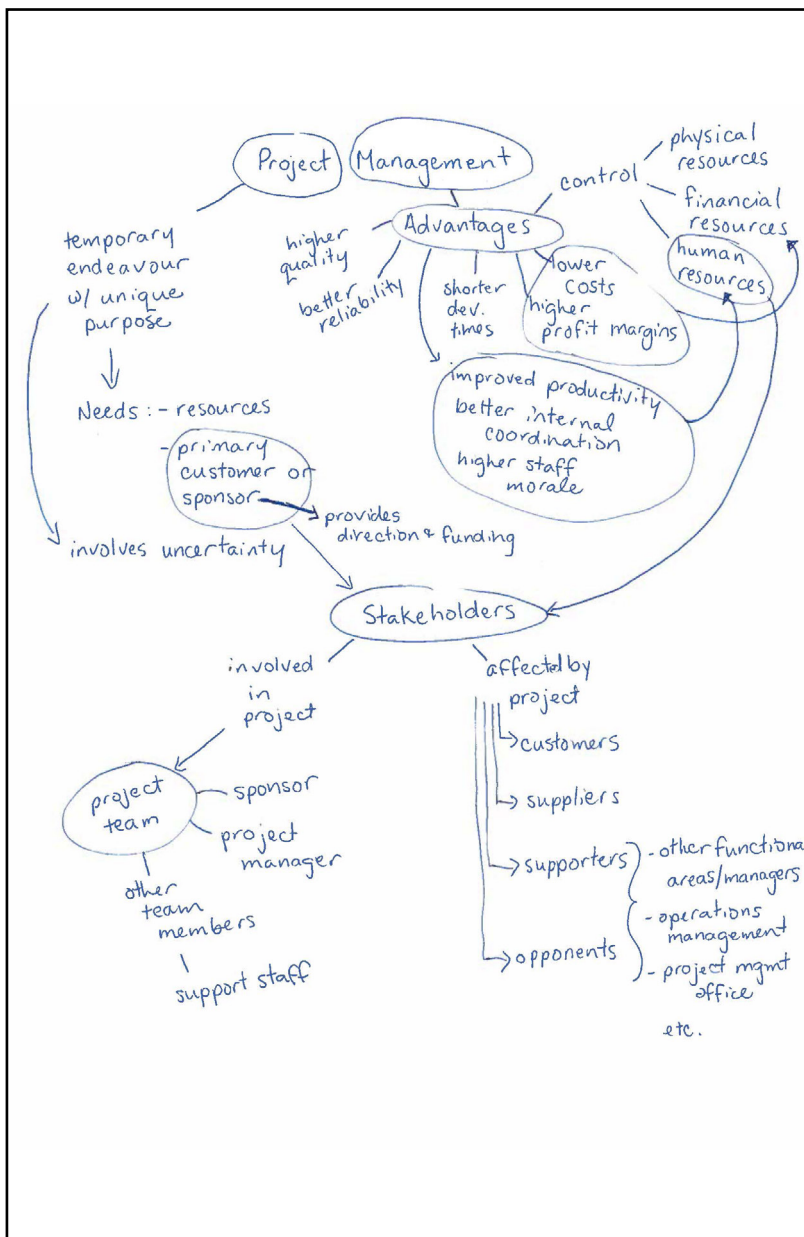 Project
Management
temporary
endeavour
w/ unique
purpose
Needs: - resources
- primary
customer or
sponsor
provides
direction & funding
involves uncertainty
Advantages
higher
quality
better
reliability
shorter
dev.
times
lower
costs
higher
profit margins
improved productivity
better internal
coordination
higher staff
morale
control
physical
resources
financial
resources
human
resources
Stakeholders
involved
in
project
project
team
sponsor
project
manager
other
team
members
support staff
affected by
project
customers
suppliers
supporters
opponents
- other functional
areas/managers
- operations
management
- project mgmt
office
etc.